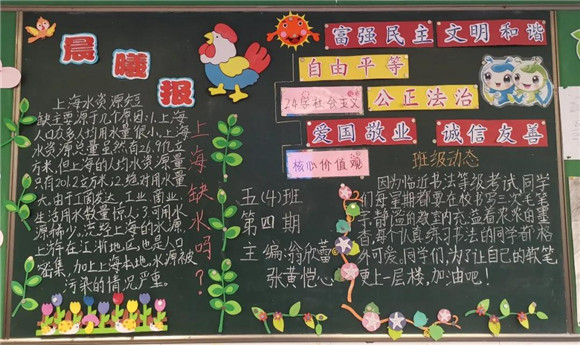 晨曦报
上海水资源短
缺主要源于几个原因:1.上海
人口众多人均用水量很小,上海
水资源总量虽然有26.9亿立
方米,但上海的人均水资源量
只有201.2立方米;2.绝对用水量
大.由于工商农业,工业,商业,
生活用水数量惊人;3.可用水
源稀少,流经上海的水源
上游在江浙地区也是人口
密集,加上上海本地水源被
污染的情况严重.
上海缺水吗?
富强民主 文明和谐
自由平等
24字社会主义 公正法治
爱国敬业 诚信友善
核心价值观
五(4)班
第四期
主编:翁欣蕾
张黄恺心
班级动态
因为临近书法等级考试,同学
们每学期都要在校书写三次毛笔
字,静谧的教室内充溢着浓浓的墨
香,每个认真练习书法的同学都格
外可爱。同学们,为了让自己的软笔
更上一层楼,加油吧!